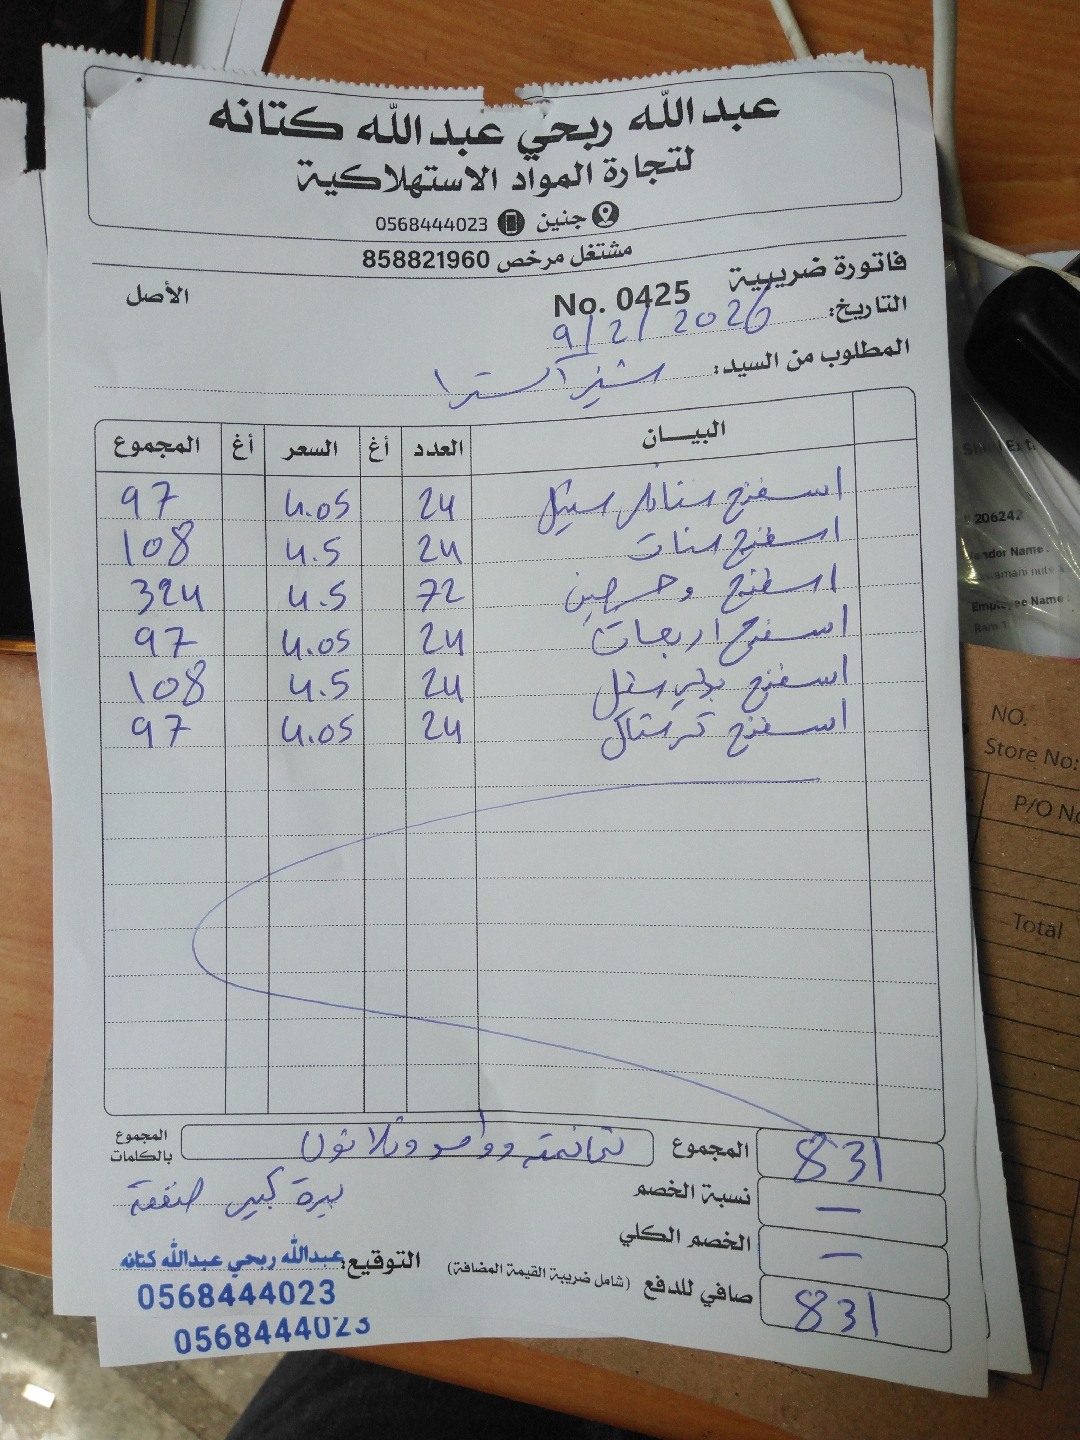 عبدالله ربحي عبدالله كتانه
لتجارة المواد الاستهلاكية
جنين 0568444023
مشتغل مرخص 858821960
فاتورة ضريبية No. 0425
الأصل
التاريخ: 9/2/2026
المطلوب من السيد: اكسترا
البيـــان العدد أغ السعر أغ المجموع
اسفنج ستانلس ستيل 24 4.05 97
اسفنج 24 4.5 108
اسفنج وجهين 72 4.5 324
اسفنج اربعات 24 4.05 97
اسفنج 24 4.5 108
اسفنج كرستال 24 4.05 97
المجموع 831
المجموع بالكلمات ثمانمئة وواحد وثلاثون
نسبة الخصم —
الخصم الكلي —
صافي للدفع (شامل ضريبة القيمة المضافة) 831
التوقيع: عبدالله ربحي عبدالله كتانه
0568444023
0568444023
206242
Vendor Name :
Employee Name :
Ram 1
NO.
Store No:
P/O No
Total